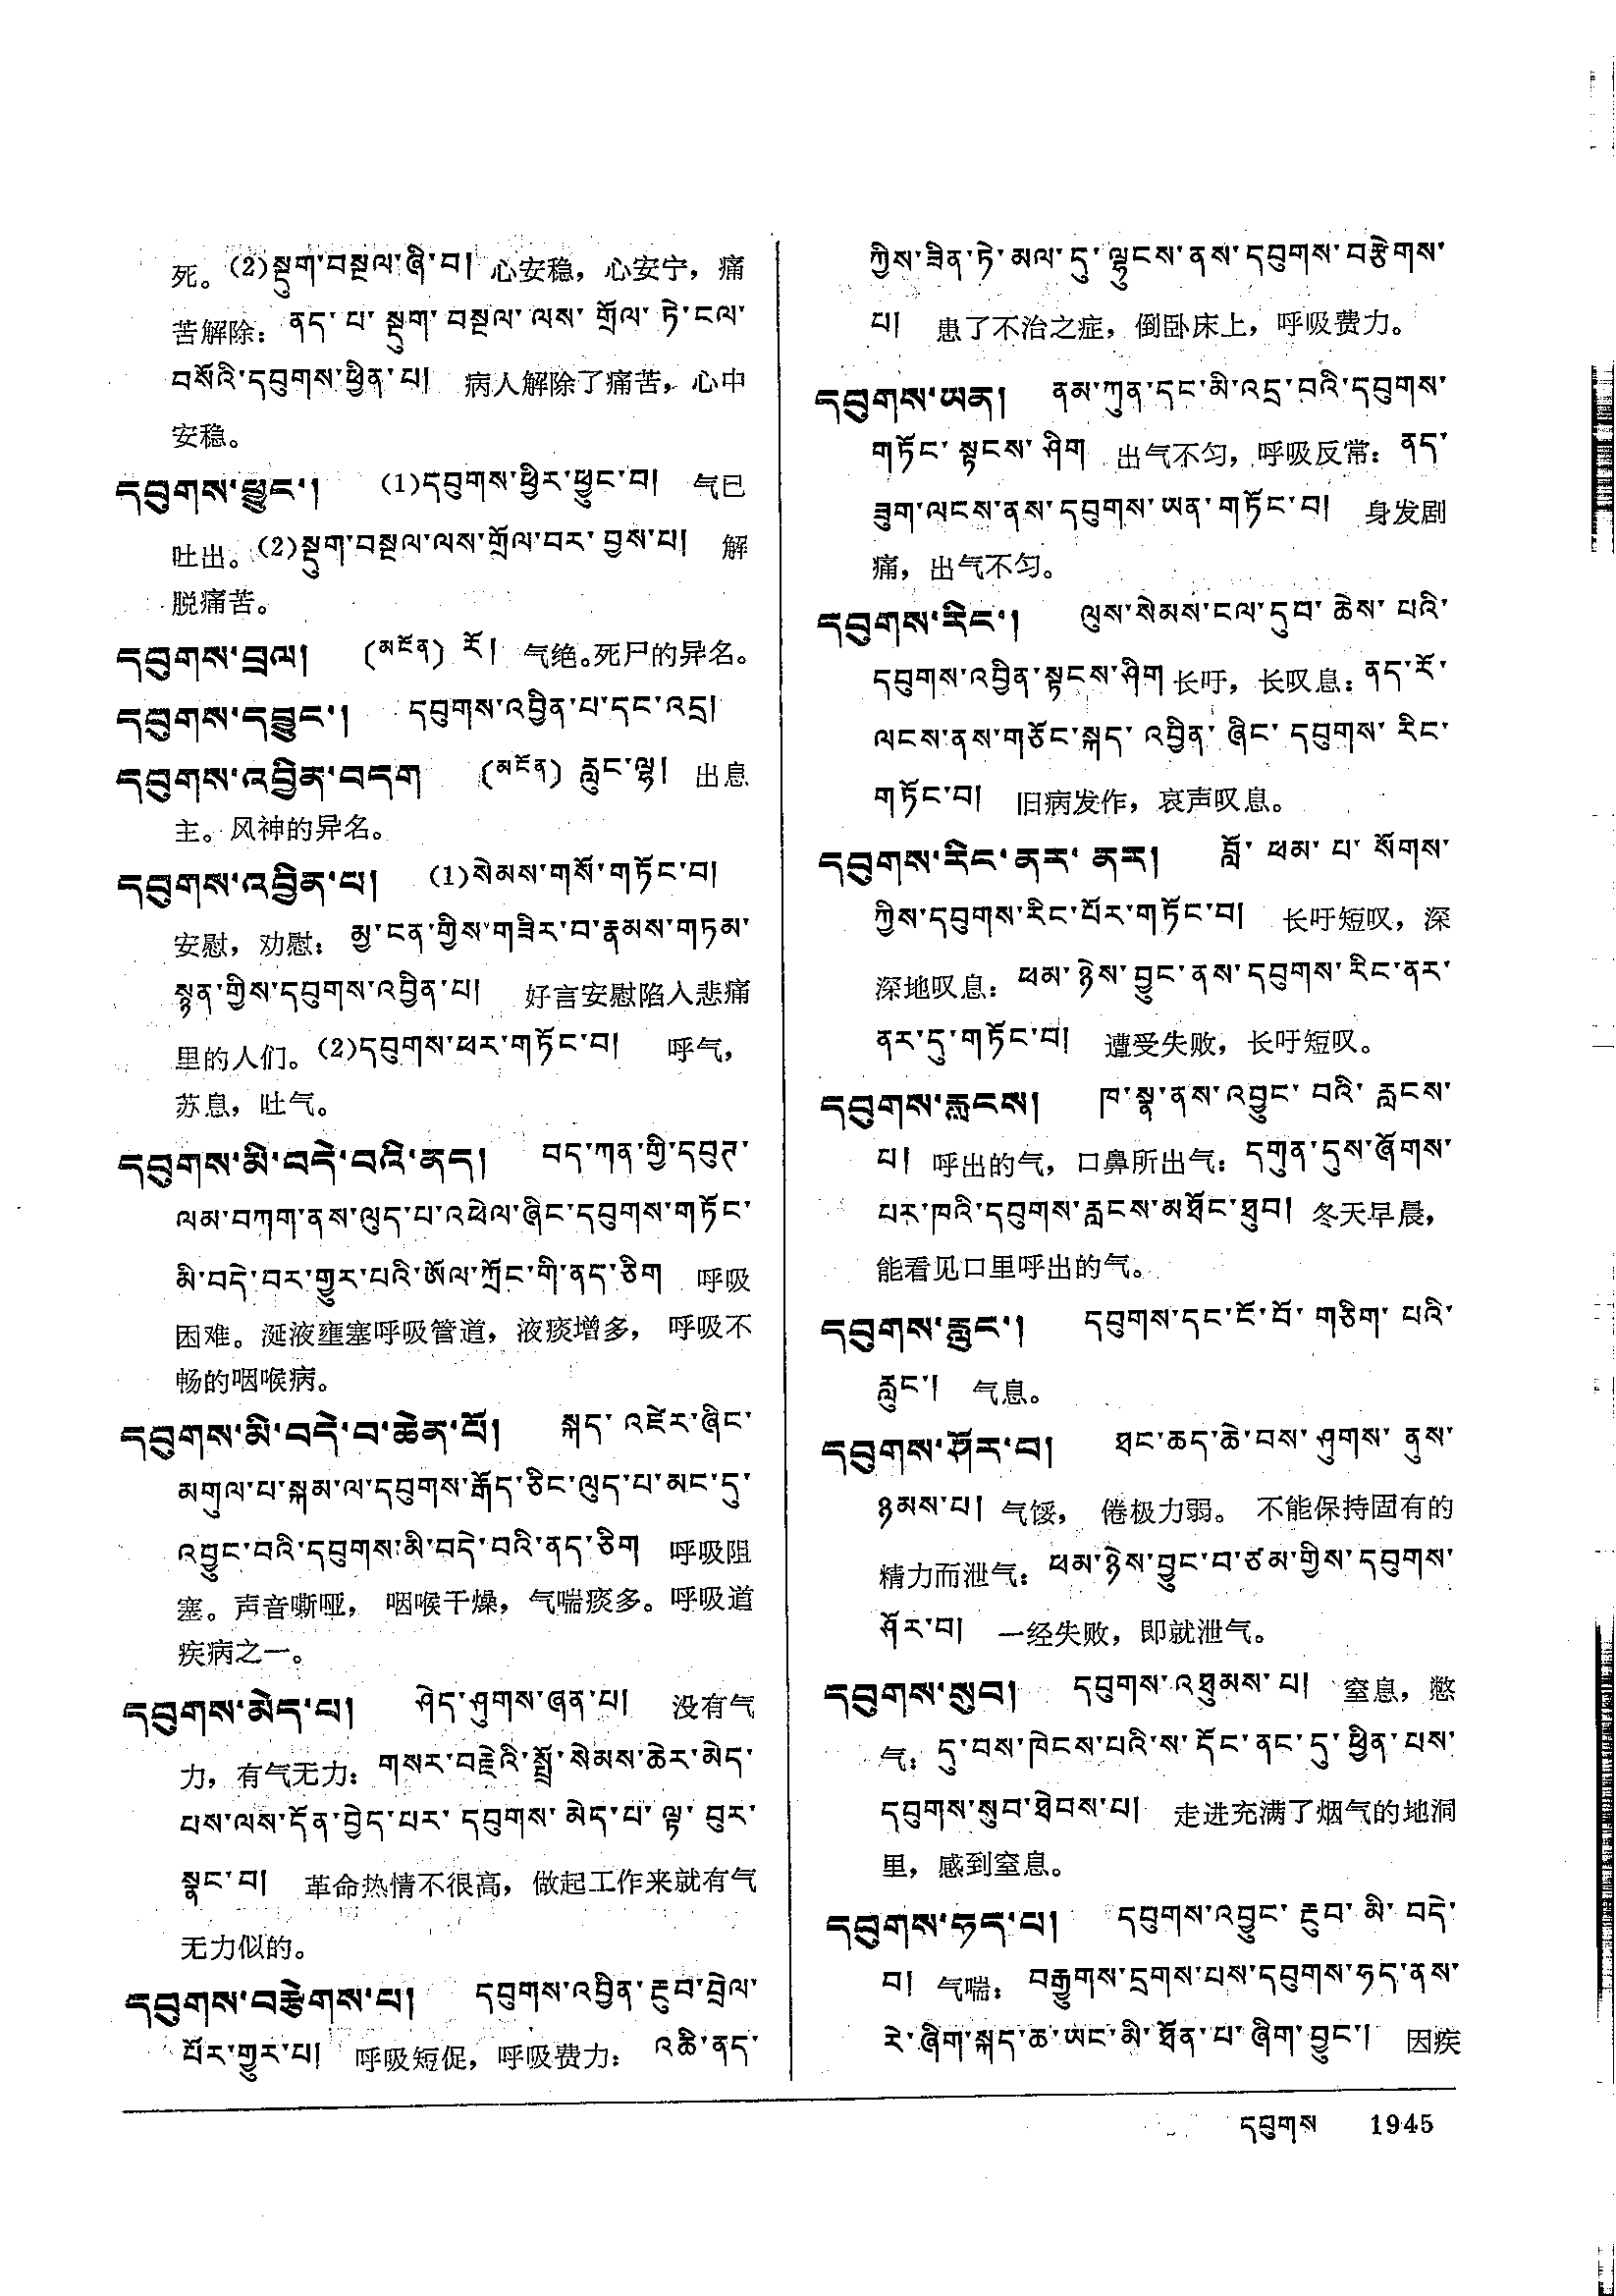 死。(2)སྡུག་བསྔལ་ཞི་བ། 心安稳，心安宁，痛
苦解除：ནད་པ་སྡུག་བསྔལ་ལས་གྲོལ་ཏེ་ངལ་
བསོའི་དབུགས་ཕྱིན་པ། 病人解除了痛苦，心中
安稳。
དབུགས་ཕྱུང་། (1)དབུགས་ཕྱིར་ཕྱུང་བ། 气已
吐出。(2)སྡུག་བསྔལ་ལས་གྲོལ་བར་བྱས་པ། 解
脱痛苦。
དབུགས་བྲལ། (མངོན) རོ། 气绝。死尸的异名。
དབུགས་དབྱུང་། དབུགས་འབྱིན་པ་དང་འདྲ།
དབུགས་འབྱིན་བདག (མངོན) རླུང་ལྷ། 出息
主。风神的异名。
དབུགས་འབྱིན་པ། (1)སེམས་གསོ་གཏོང་བ།
安慰，劝慰：མྱ་ངན་གྱིས་གཟིར་བ་རྣམས་གཏམ་
སྙན་གྱིས་དབུགས་འབྱིན་པ། 好言安慰陷入悲痛
里的人们。(2)དབུགས་ཕར་གཏོང་བ། 呼气，
苏息，吐气。
དབུགས་མི་བདེ་བའི་ནད། བད་ཀན་གྱི་དབུཊ་
ལམ་བཀག་ནས་ལུད་པ་འཕེལ་ཞིང་དབུགས་གཏོང་
མི་བདེ་བར་གྱུར་པའི་ཨོལ་ཀྲོང་གི་ནད་ཅིག 呼吸
困难。涎液壅塞呼吸管道，液痰增多，呼吸不
畅的咽喉病。
དབུགས་མི་བདེ་བ་ཆེན་པོ། སྐད་འཛེར་ཞིང་
མགུལ་པ་སྐམ་ལ་དབུགས་རྒོད་ཅིང་ལུད་པ་མང་དུ་
འབྱུང་བའི་དབུགས་མི་བདེ་བའི་ནད་ཅིག 呼吸阻
塞。声音嘶哑，咽喉干燥，气喘痰多。呼吸道
疾病之一。
དབུགས་མེད་པ། ཤེད་ཤུགས་ཞན་པ། 没有气
力，有气无力：གསར་བརྗེའི་སྤྲོ་སེམས་ཆེར་མེད་
པས་ལས་དོན་བྱེད་པར་དབུགས་མེད་པ་ལྟ་བུར་
སྣང་བ། 革命热情不很高，做起工作来就有气
无力似的。
དབུགས་བརྩེགས་པ། དབུགས་འབྱིན་རྔུབ་བྲེལ་
པོར་གྱུར་པ། 呼吸短促，呼吸费力：འཆི་ནད་
ཀྱིས་ཟིན་ཏེ་མལ་དུ་ལྷུངས་ནས་དབུགས་བརྩེགས་
པ། 患了不治之症，倒卧床上，呼吸费力。
དབུགས་ཡན། ནམ་ཀུན་དང་མི་འདྲ་བའི་དབུགས་
གཏོང་སྟངས་ཤིག 出气不匀，呼吸反常：ནད་
ཟུག་ལངས་ནས་དབུགས་ཡན་གཏོང་བ། 身发剧
痛，出气不匀。
དབུགས་རིང་། ལུས་སེམས་ངལ་དུབ་ཆེས་པའི་
དབུགས་འབྱིན་སྟངས་ཤིག 长吁，长叹息：ནད་རོ་
ལངས་ནས་གཅོང་སྐད་འབྱིན་ཞིང་དབུགས་རིང་
གཏོང་བ། 旧病发作，哀声叹息。
དབུགས་རིང་ནར་ནར། བློ་ཕམ་པ་སོགས་
ཀྱིས་དབུགས་རིང་པོར་གཏོང་བ། 长吁短叹，深
深地叹息：ཕམ་ཉེས་བྱུང་ནས་དབུགས་རིང་ནར་
ནར་དུ་གཏོང་བ། 遭受失败，长吁短叹。
དབུགས་རླངས། ཁ་སྣ་ནས་འབྱུང་བའི་རླངས་
པ། 呼出的气，口鼻所出气：དགུན་དུས་ཞོགས་
པར་ཁའི་དབུགས་རླངས་མཐོང་ཐུབ། 冬天早晨，
能看见口里呼出的气。
དབུགས་རླུང་། དབུགས་དང་ངོ་བོ་གཅིག་པའི་
རླུང་། 气息。
དབུགས་ཤོར་བ། ཐང་ཆད་ཆེ་བས་ཤུགས་ནུས་
ཉམས་པ། 气馁，倦极力弱。不能保持固有的
精力而泄气：ཕམ་ཉེས་བྱུང་བ་ཙམ་གྱིས་དབུགས་
ཤོར་བ། 一经失败，即就泄气。
དབུགས་སུབ། དབུགས་འཐུམས་པ། 窒息，憋
气：དུ་བས་ཁེངས་པའི་ས་དོང་ནང་དུ་ཕྱིན་པས་
དབུགས་སུབ་ཐེབས་པ། 走进充满了烟气的地洞
里，感到窒息。
དབུགས་ཧད་པ། དབུགས་འབྱུང་རྔུབ་མི་བདེ་
བ། 气喘：བརྒྱུགས་དྲགས་པས་དབུགས་ཧད་ནས་
རེ་ཞིག་སྐད་ཆ་ཡང་མི་ཐོན་པ་ཞིག་བྱུང་། 因疾
དབུགས 1945